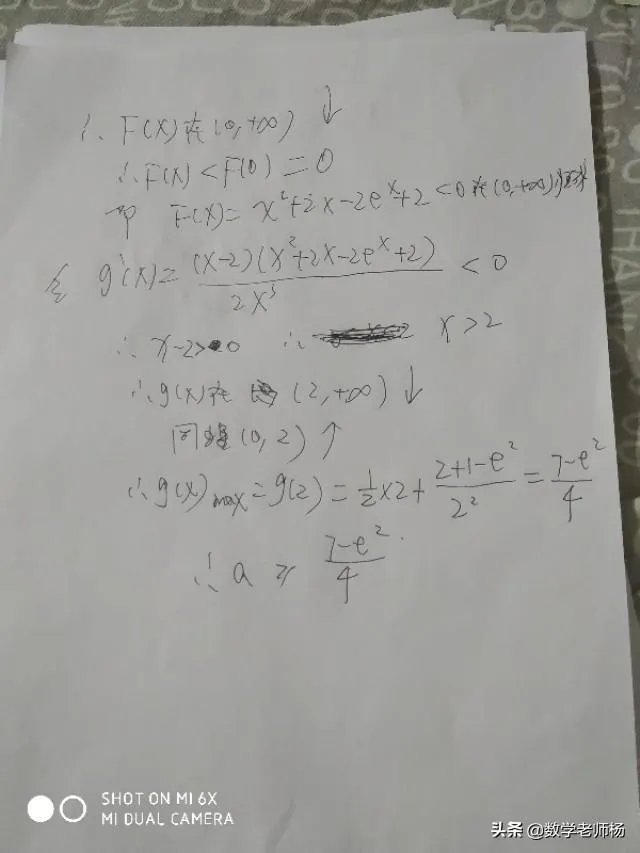 ∴ F(x)在(0,+∞) ↓
∴F(x)<F(0)=0
即 F(x)=x²+2x-2eˣ+2<0在(0,+∞)恒成
令 g'(x)=(x-2)(x²+2x-2eˣ+2)/2x³ <0
∴ x-2>0 ∴ x>2
∴g(x)在(2,+∞)↓
同理(0,2)↑
∴g(x)max=g(2)=½×2+(2+1-e²)/2²=(7-e²)/4
∴a≥(7-e²)/4
SHOT ON MI 6X
MI DUAL CAMERA
头条 @数学老师杨